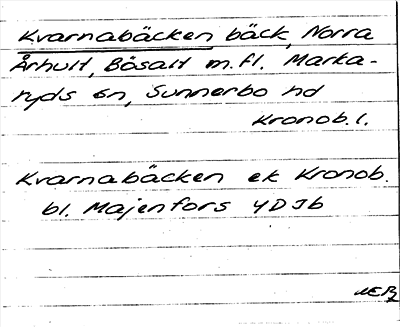 Kvarnabäcken bäck, Norra
Århult, Bösalt m.fl. Marka-
ryds sn, Sunnerbo hd
Kronob.l.
Kvarnabäcken ek Kronob.
bl. Majenfors 4D Jb